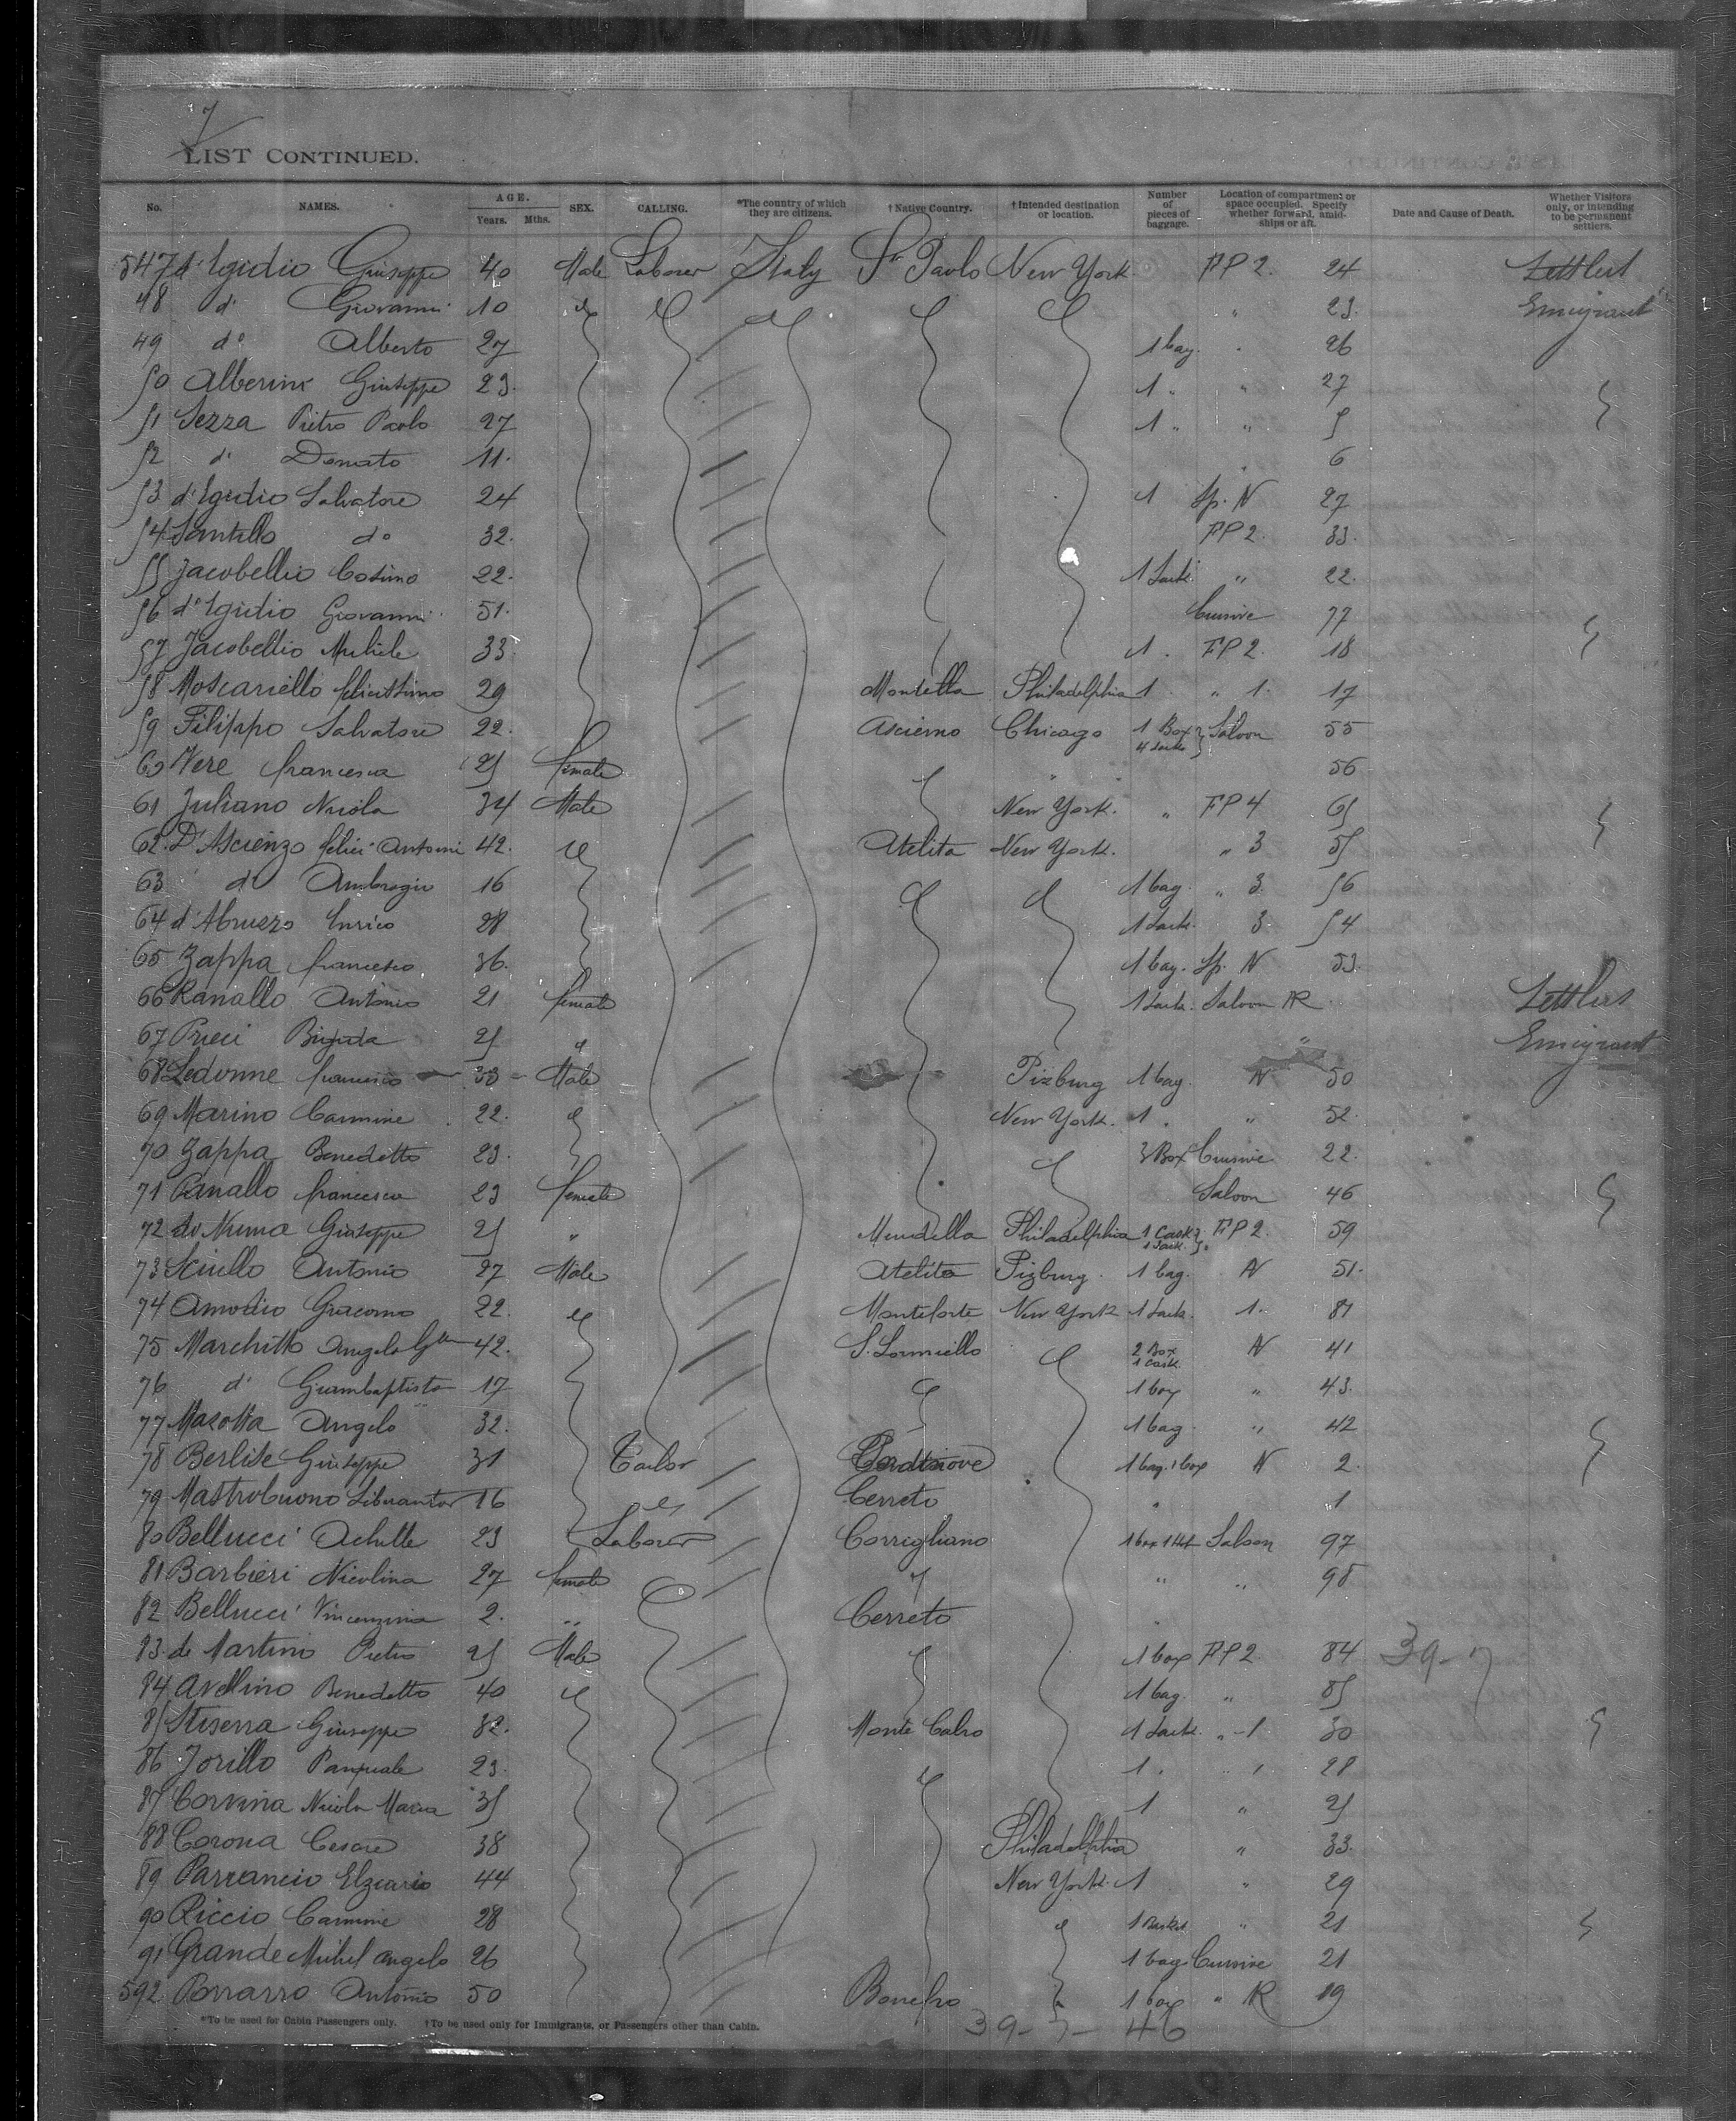 7
LIST CONTINUED.
No. NAMES. AGE. Years. Mths. SEX. CALLING. *The country of which they are citizens. †Native Country. †Intended destination or location. Number of pieces of baggage. Location of compartment or space occupied. Specify whether forward, amidships or aft. Date and Cause of Death. Whether Visitors only, or intending to be permanent settlers.
547 d'Egidio Giuseppe 40 Male Laborer Italy St Paolo New York FP 2. 24 Settlers
48 do Giovanni 10 " 23. Emigrant
49 do Alberto 27 1 bag. " 26
50 Alberini Giuseppe 23. 1 " " 27
51 Sezza Pietro Paolo 27 1 " " 5
52 do Donato 11. 6
53 d'Egidio Salvatore 24 1 Sp. N 27
54 Santillo do 32. FP 2. 33.
55 Jacobellio Cosimo 22. 1 Sack " 22.
56 d'Egidio Giovanni 51. Cuisive 77
57 Jacobellio Michele 33 1 . FP 2. 18
58 Moscariello Felicissimo 29 Montella Philadelphia 1 " 1. 17
59 Filippo Salvatore 22. Ascierno Chicago 1 Box 4 Sacks Saloon 55
60 Vere francesca 25 female " 56
61 Juliano Nicola 34 Male New York. " FP 4 65
62. D'Ascienzo felice Antonio 42. Atelita New York. " 3 55
63 do Ambrogio 16 1 bag. " 3. 56
64 d'Abruzzo Enrico 28 1 Sack. 3. 54
65 Zappa francesco 36. 1 bag. Sp. N 53.
66 Ranallo Antonio 21 female 1 Sack. Saloon R Settlers
67 Preci Brigida 25 " Emigrant
68 Ledonne francesco 33 Male Pizburg 1 bag. N 50
69 Marino Carmine 22. New York. 1 . " 52.
70 Zappa Benedetto 23. 3 Box Cuisive 22.
71 Ranallo francesca 23 female Saloon 46
72 de Numa Giuseppe 25 " Mendella Philadelphia 1 Cask 1 Sack FP 2. 59
73 Sciullo Antonio 27 Male Atelita Pizburg. 1 bag. N 51.
74 Amodio Giacomo 22. Monteforte New York 1 Sack. 1. 81
75 Marchitto Angelo 42. S. Lormiello 2 Box 1 Cask. N 41
76 do Giambaptista 17 1 box " 43.
77 Mazotta Angelo 32. 1 bag " 42
78 Berlise Giuseppe 31 Tailor 1 bag. 1 box N 2.
79 Mastrobuono Liberantor 16 Cerreto " 1
80 Bellucci Achille 23 Laborer Corrigliano 1 box Saloon 97
81 Barbieri Nicolina 27 female " " 98
82 Bellucci Vincenzina 2. " Cerreto "
83. de Martino Pietro 25 Male 1 box FP 2. 84 39-7
84 Avellino Benedetto 40 1 bag. " 85
85 Stiserra Giuseppe 32. Monte Calvo 1 Sack. " -1 30
86 Jorillo Pasquale 23. 1 . " 28
87 Corvina Nicola Maria 35 1 " 25
88 Corona Cesare 38 Philadelphia " 33.
89 Parrancio Elzeario 44 New York. 1 " 29
90 Riccio Carmine 28 " 1 Basket " 21
91 Grande Michel Angelo 26 1 bag Cuisive 21
592 Porrarro Antonio 50 Bonefro 1 box " R 19
*To be used for Cabin Passengers only. †To be used only for Immigrants, or Passengers other than Cabin.
39-7-46